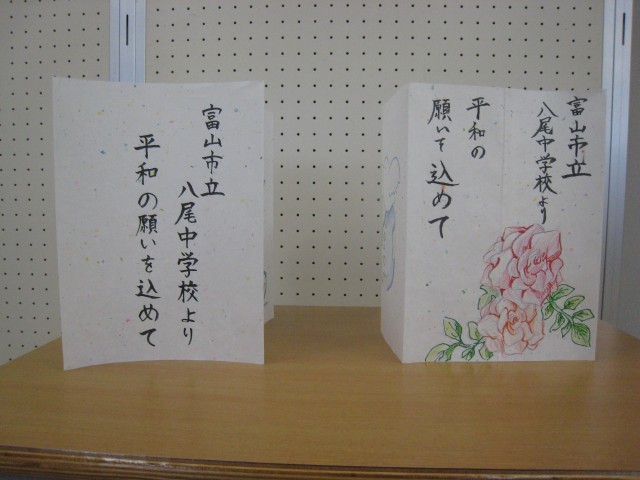 富山市立
八尾中学校より
平和の願いを込めて
富山市立
八尾中学校より
平和の
願いを込めて